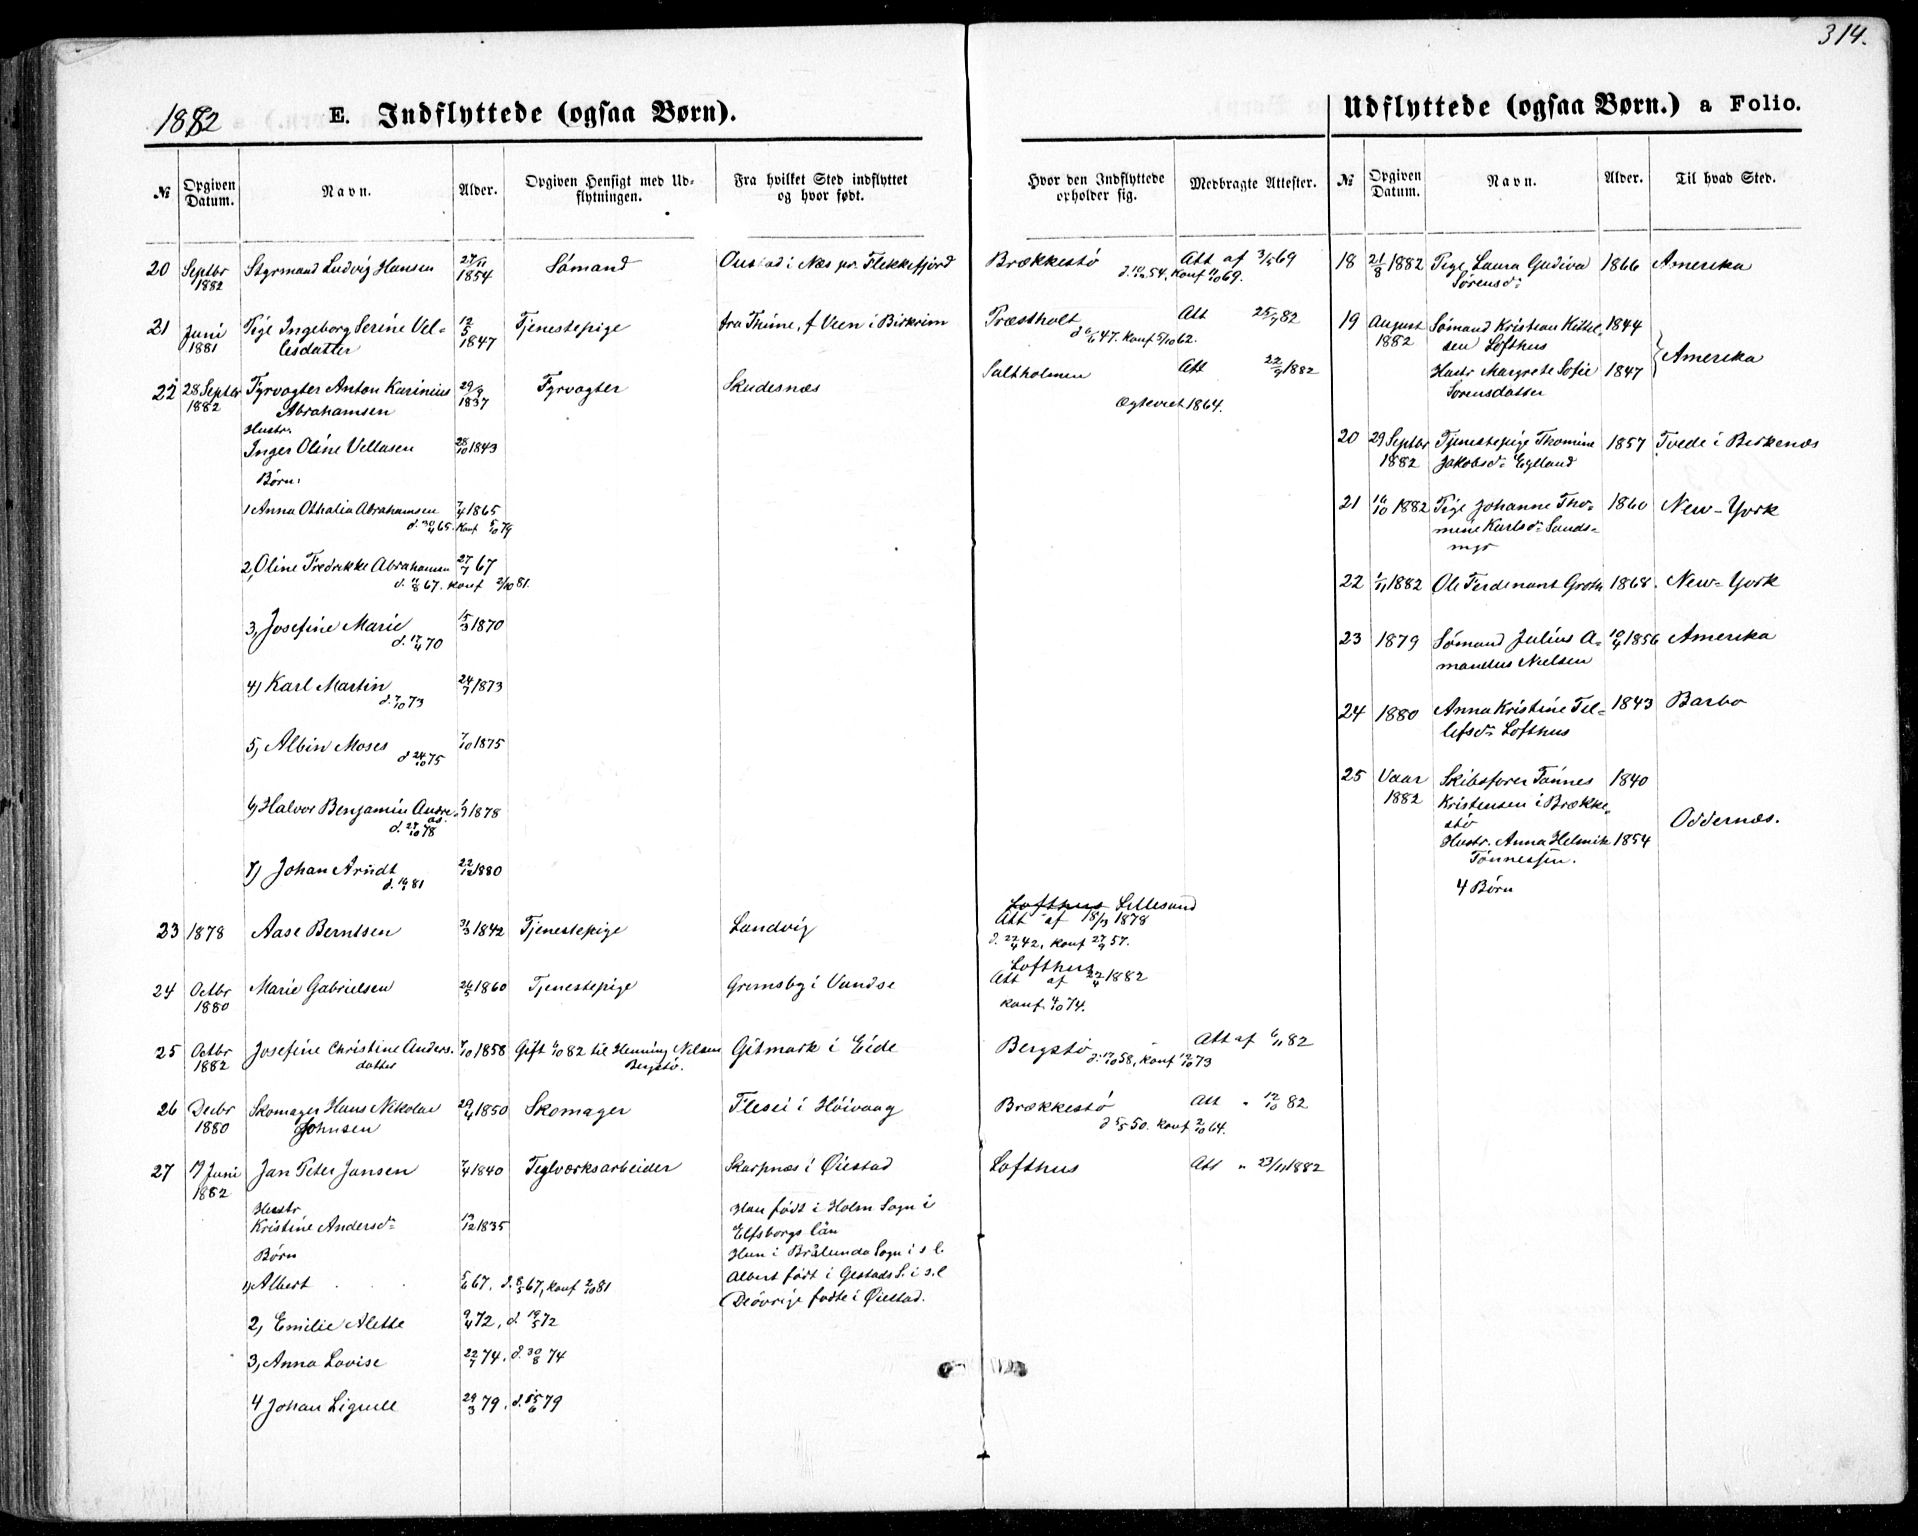 314.
1882
E. Indflyttede (ogsaa Børn).
№
Opgiven Datum.
Navn.
Alder.
Opgiven Hensigt med Udflytningen.
Fra hvilket Sted indflyttet og hvor født.
Hvor den Indflyttede opholder sig.
Medbragte Attester.
20 Septbr 1882 Styrmand Ludvig Hansen 27/11 1854 Sömand i Næs pr. Flekkefjord Brækkestö Att af 3/5 69
konf 69.
21 Juni 1881 Pige Ingeborg Serine Vel- 12/5 1847 Tjenestepige fra Thime, f Veen i Birkrim Præstholt Att 25/7 82
lesdatter 47. konf 5/10 62.
22 28 Septbr 1882 Fyrvogter Anton Karinius 1837 Fyrvogter Skudesnæs Saltholmen Att 22/9 1882
Abrahamsen Ægteviet 1864.
Hustr.
Inger Oline Vellasen 28/10 1843
Børn:
1, Anna Othalia Abrahamsen 7/4 1865
d. 30/4 65. konf 5/10 79
2, Oline Fredrikke Abrahamsen 27/7 67
d. 11/8 67. konf 2/10 81.
3, Josefine Marie 15/3 1870
d. 17/4 70
4) Karl Martin 24/7 1873
d. 7/10 73
5, Albin Moses 7/10 1875
d 24/10 75
6, Halvor Benjamin Andreas 1/9 1878
d. 27/10 78
7) Johan Arndt 22/12 1880
d. 81
23 1878 Aase Berntsen 31/3 1842 Tjenestepige Landvig Lofthus Lillesand
Att af 18/3 1878
d. 22/4 42, konf 27/9 57.
24 Octbr 1880 Marie Gabrielsen 26/5 1860 Tjenestepige Gremsby i Vandse Lofthus
Att af 22/4 1882
konf. 4/10 74.
25 Octbr 1882 Josefine Christine Anders- 7/10 1858 Gift 82 til Henning Nelsen Gitmark i Eide Bergstö Att af 6/11 82
datter Bergstö. 58, konf 12/10 73
26 Decbr 1880 Skomager Hans Nikolai 29/4 1850 Skomager i Höivaag Brækkestö Att " 12/10 82
Johnsen d 5/5 50. konf 2/10 64.
27 17 Juni 1882 Jan Peter Jansen 7/4 1840 Teglværksarbeider Skarpnæs i Øiestad Lofthus Att " 23/11 1882
Hustr
Kristine Andersd= 12 1835
Han født i Holm Sogn i
Elfsborgs län
Hun i Brålunda Sogn i s l.
Børn
1) Albert 5/6 67, d. 67, konf 2/10 81
Albert født i Gestads S. i s. l
De övrige fødte i Øiestad.
2, Emilie Alette 9/4 72, d. 19/5 72
3, Anna Lovise 22/7 74, d. 30/8 74
4 Johan 29/3 79, d. 15/6 79
Udflyttede (ogsaa Børn.) a Folio.
№
Opgiven Datum.
Navn.
Alder.
Til hvad Sted.
18 21/8 1882 Pige Laura Gudiva 1866 Amerika
Sørensd=
19 August 1882 Sømand Kristian Kittel- 1844
sen Lofthus
Hustr Margrete Sofie 1847 } Amerika
Sorensdatter
20 29 Septbr 1882 Tjenestepige Thomine 1857 Tvede i Birkenæs
Jakobsd= Eglland
21 1882 Pige Johanne Tho- 1860 New-York
mine Karlsd= Sands-
myr
22 1/11 1882 Ole Ferdinant Groth 1868. New-York
23 1879 Sømand Julius A- 19/4 1856 Amerika
mandus Nielsen
24 1880 Anna Kristine Tel- 1843 Barbo
lefsd= Lofthus
25 Vaar 1882 Skibsfører Tönnes 1840
Kristensen i Brække-
stö Oddernæs.
Hustr. Anna Helmik 1854
Tönnessen.
4 Børn